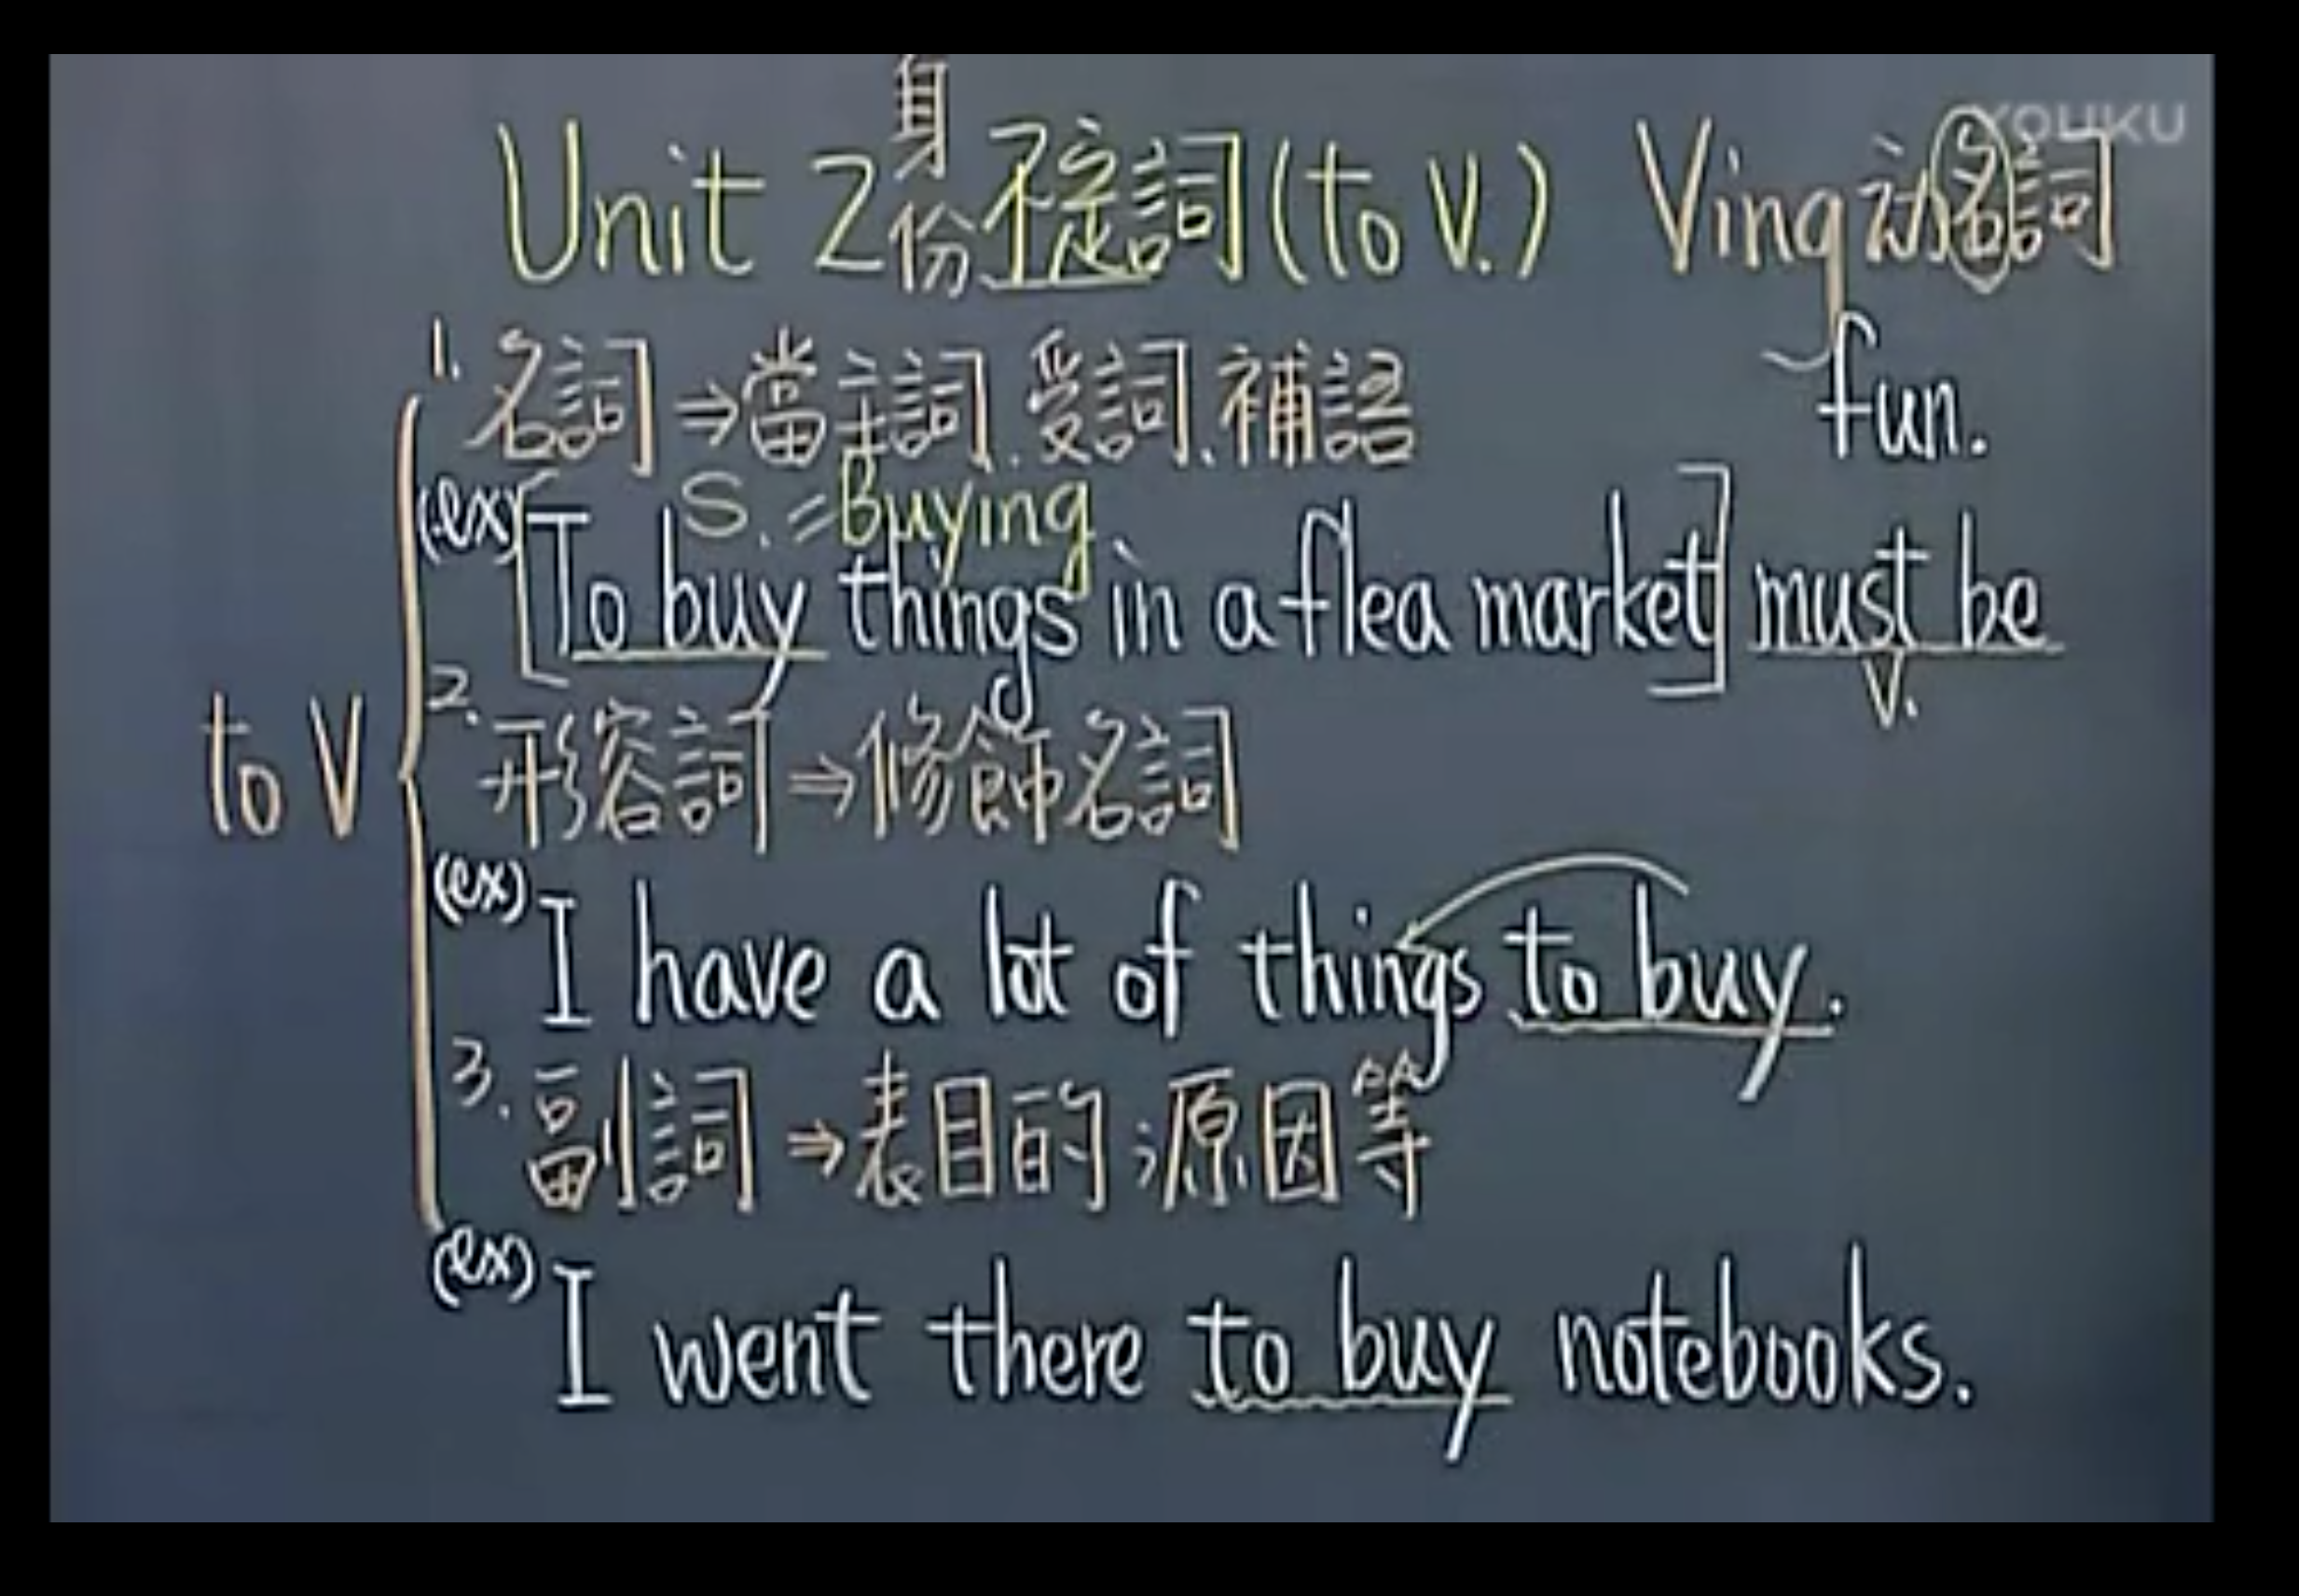 YOUKU
身
份
Unit 2 不定詞 (to V.) Ving 动名詞
1. 名詞 ⇒ 當主詞、受詞、補語
fun.
S. = Buying
(ex) [To buy things in a flea market] must be
V.
to V
2. 形容詞 ⇒ 修飾名詞
(ex) I have a lot of things to buy.
3. 副詞 ⇒ 表目的;原因等
(ex) I went there to buy notebooks.